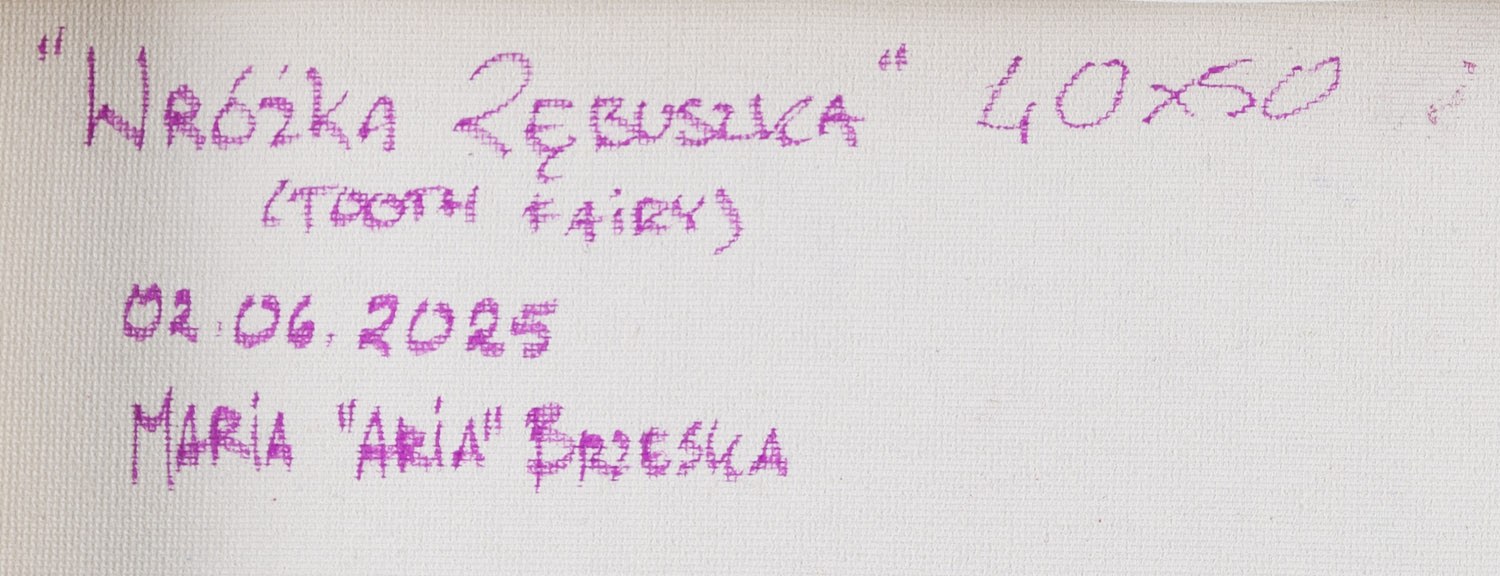 "WRÓŻKA ZĘBUSZKA" 40x50
(TOOTH FAIRY)
02.06.2025
MARIA "ARIA" BRZESKA